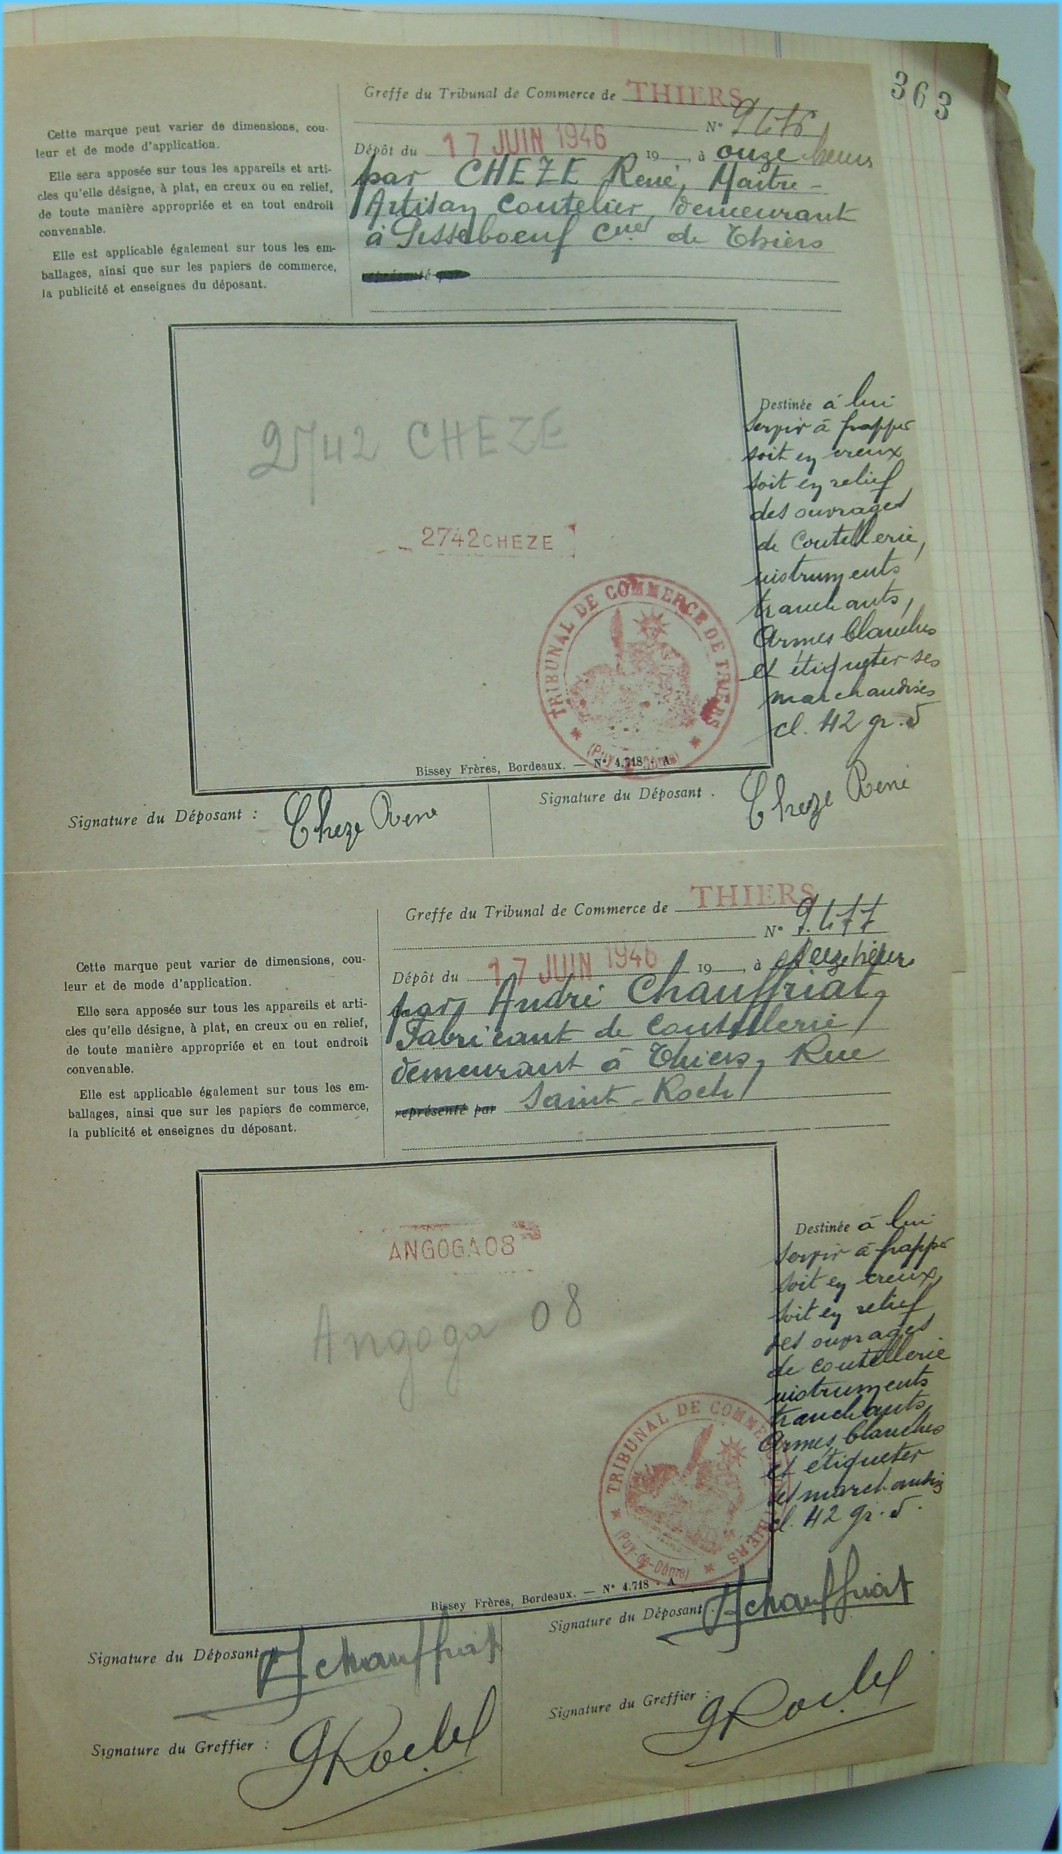 363
Greffe du Tribunal de Commerce de THIERS
N° 9476
Dépôt du 17 JUIN 1946 19 , à onze heures
par CHEZE René, Maître-
Artisan Coutelier, demeurant
à Pisseboeuf Cne de Thiers
représenté par
Cette marque peut varier de dimensions, cou-
leur et de mode d'application.
Elle sera apposée sur tous les appareils et arti-
cles qu'elle désigne, à plat, en creux ou en relief,
de toute manière appropriée et en tout endroit
convenable.
Elle est applicable également sur tous les em-
ballages, ainsi que sur les papiers de commerce,
la publicité et enseignes du déposant.
2742 CHEZE
2742CHEZE
TRIBUNAL DE COMMERCE DE THIERS
(Puy-de-Dôme)
Destinée à lui
servir à frapper
soit en creux
soit en relief
des ouvrages
de Coutellerie,
instruments
tranchants,
Armes blanches
et étiqueter ses
marchandises
cl. 42 gr. d
Bissey Frères, Bordeaux. — N° 4.718 - A
Signature du Déposant : Cheze René
Signature du Déposant . Cheze René
Greffe du Tribunal de Commerce de THIERS
N° 9.477
Dépôt du 17 JUIN 1946 19 , à heures
par André Chauffriat,
Fabricant de Coutellerie,
demeurant à Thiers, Rue
représenté par Saint-Roch
Cette marque peut varier de dimensions, cou-
leur et de mode d'application.
Elle sera apposée sur tous les appareils et arti-
cles qu'elle désigne, à plat, en creux ou en relief,
de toute manière appropriée et en tout endroit
convenable.
Elle est applicable également sur tous les em-
ballages, ainsi que sur les papiers de commerce,
la publicité et enseignes du déposant.
ANGOGA08
Angoga 08
TRIBUNAL DE COMMERCE DE THIERS
(Puy-de-Dôme)
Destinée à lui
servir à frapper
soit en creux
soit en relief
des ouvrages
de coutellerie
instruments
tranchants,
Armes blanches
et étiqueter
ses marchandises
cl. 42 gr. d.
Bissey Frères, Bordeaux. — N° 4.718 - A
Signature du Déposant AChauffriat
Signature du Déposant : AChauffriat
Signature du Greffier :
Signature du Greffier :